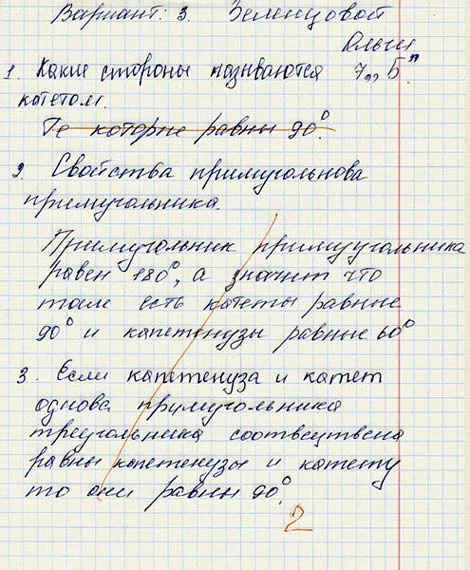 Вариант: 3. Зеленцовой
Ольги
1. Какие стороны позиваются 7„Б"
катетом.
Те которые равны 90°.
2. Свойства прямугольнова
примугольника.
Примугольник примуугольника
равен 180°, а значит что
тоже есть катеты равные
90° и капетенузы равные 60°
3. Если капетенуза и катет
однова прумугольника
треугольника соотвеутвена
равны капетенузы и катету
то они равны 90°.
2